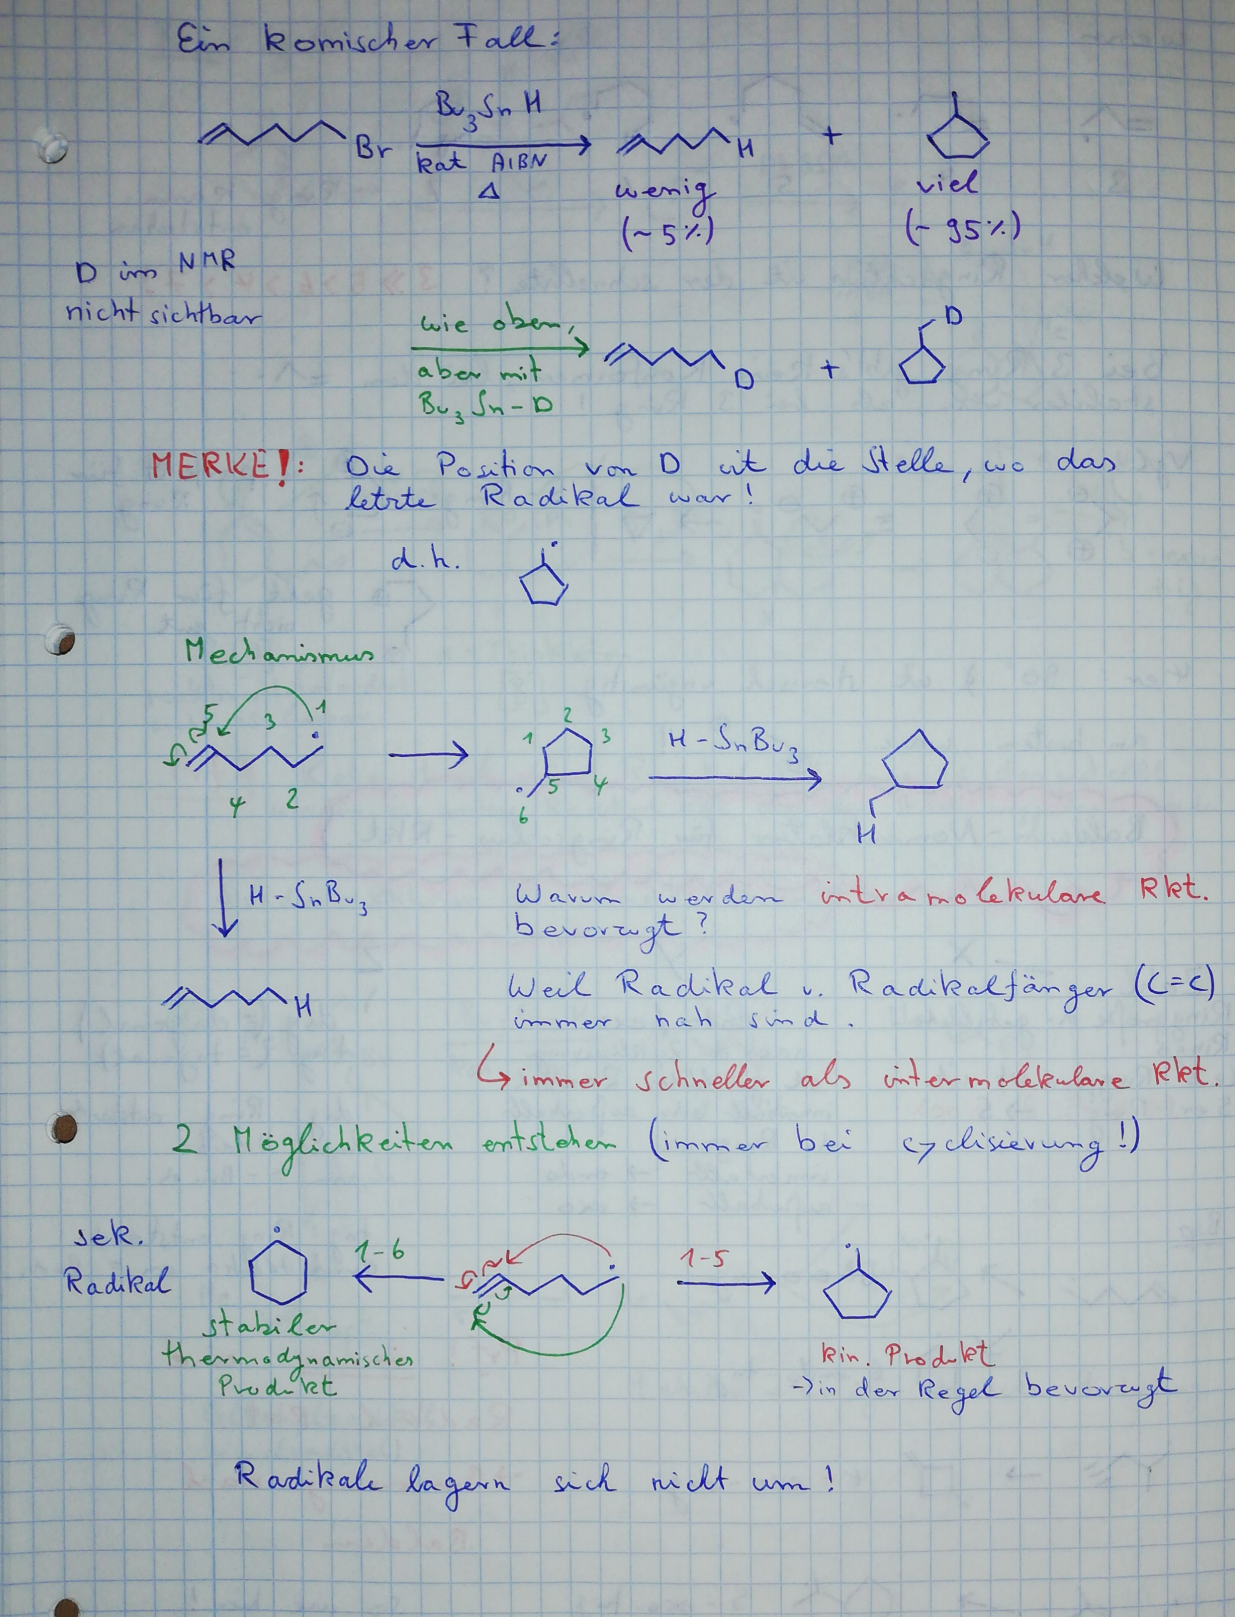 Ein komischer Fall:
Br
Bu3SnH
kat AIBN
Δ
H
wenig
(~5%)
+
viel
(~95%)
D im NMR
nicht sichtbar
wie oben,
aber mit
Bu3Sn-D
D
+
D
MERKE!: Die Position von D ist die Stelle, wo das
letzte Radikal war!
d.h.
Mechanismus
5 3 1
4 2
1 2 3
5 4
6
H-SnBu3
H
H-SnBu3
H
Warum werden intramolekulare Rkt.
bevorzugt?
Weil Radikal u. Radikalfänger (C=C)
immer nah sind.
↳ immer schneller als intermolekulare Rkt.
2 Möglichkeiten entstehen (immer bei cyclisierung!)
sek.
Radikal
1-6
1-5
stabiler
thermodynamisches
Produkt
kin. Produkt
→ in der Regel bevorzugt
Radikale lagern sich nicht um!